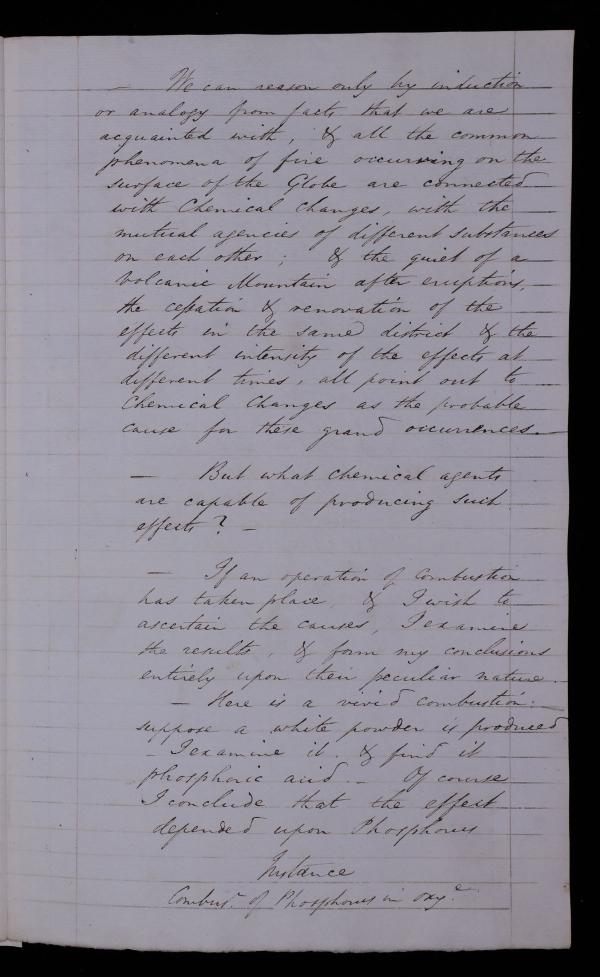 — We can reason only by induction
or analogy from facts that we are
acquainted with, & all the common
phenomena of fire occurring on the
surface of the Globe are connected
with Chemical Changes, with the
mutual agencies of different substances
on each other; & the quiet of a
Volcanic Mountain after eruptions,
the cessation & renovation of the
effects in the same district & the
different intensity of the effects at
different times, all point out to
Chemical Changes as the probable
cause for these grand occurrences. —
— But what chemical agents
are capable of producing such
effects? —
— If an operation of Combustion
has taken place, & I wish to
ascertain the causes, I examine
the results, & form my conclusions
entirely upon their peculiar nature. —
— Here is a vivid combustion:
suppose a white powder is produced
— I examine it. & find it
phosphoric acid. — Of course
I conclude that the effect
depended upon Phosphorus
Instance
Combusn. of Phosphorus in Oxye.